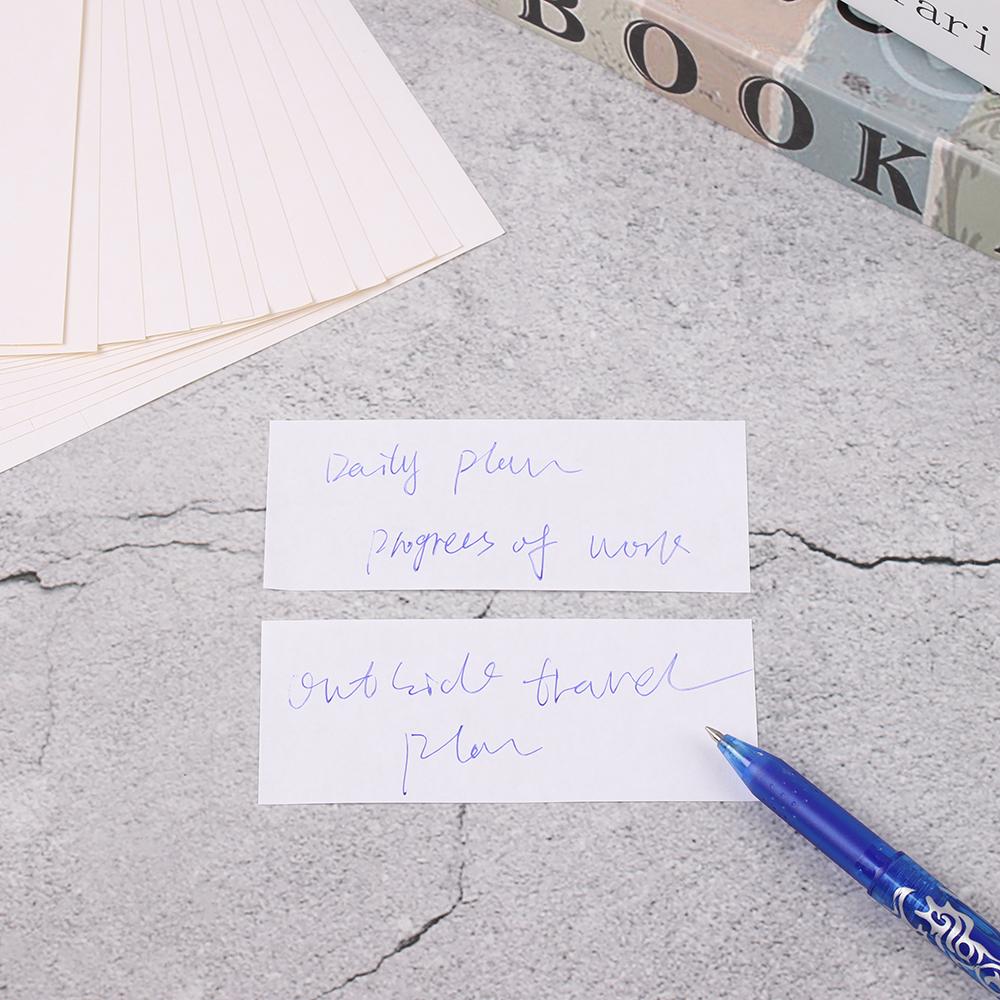 BOOK
ari
Daily plan
progress of work
outside travel
plan